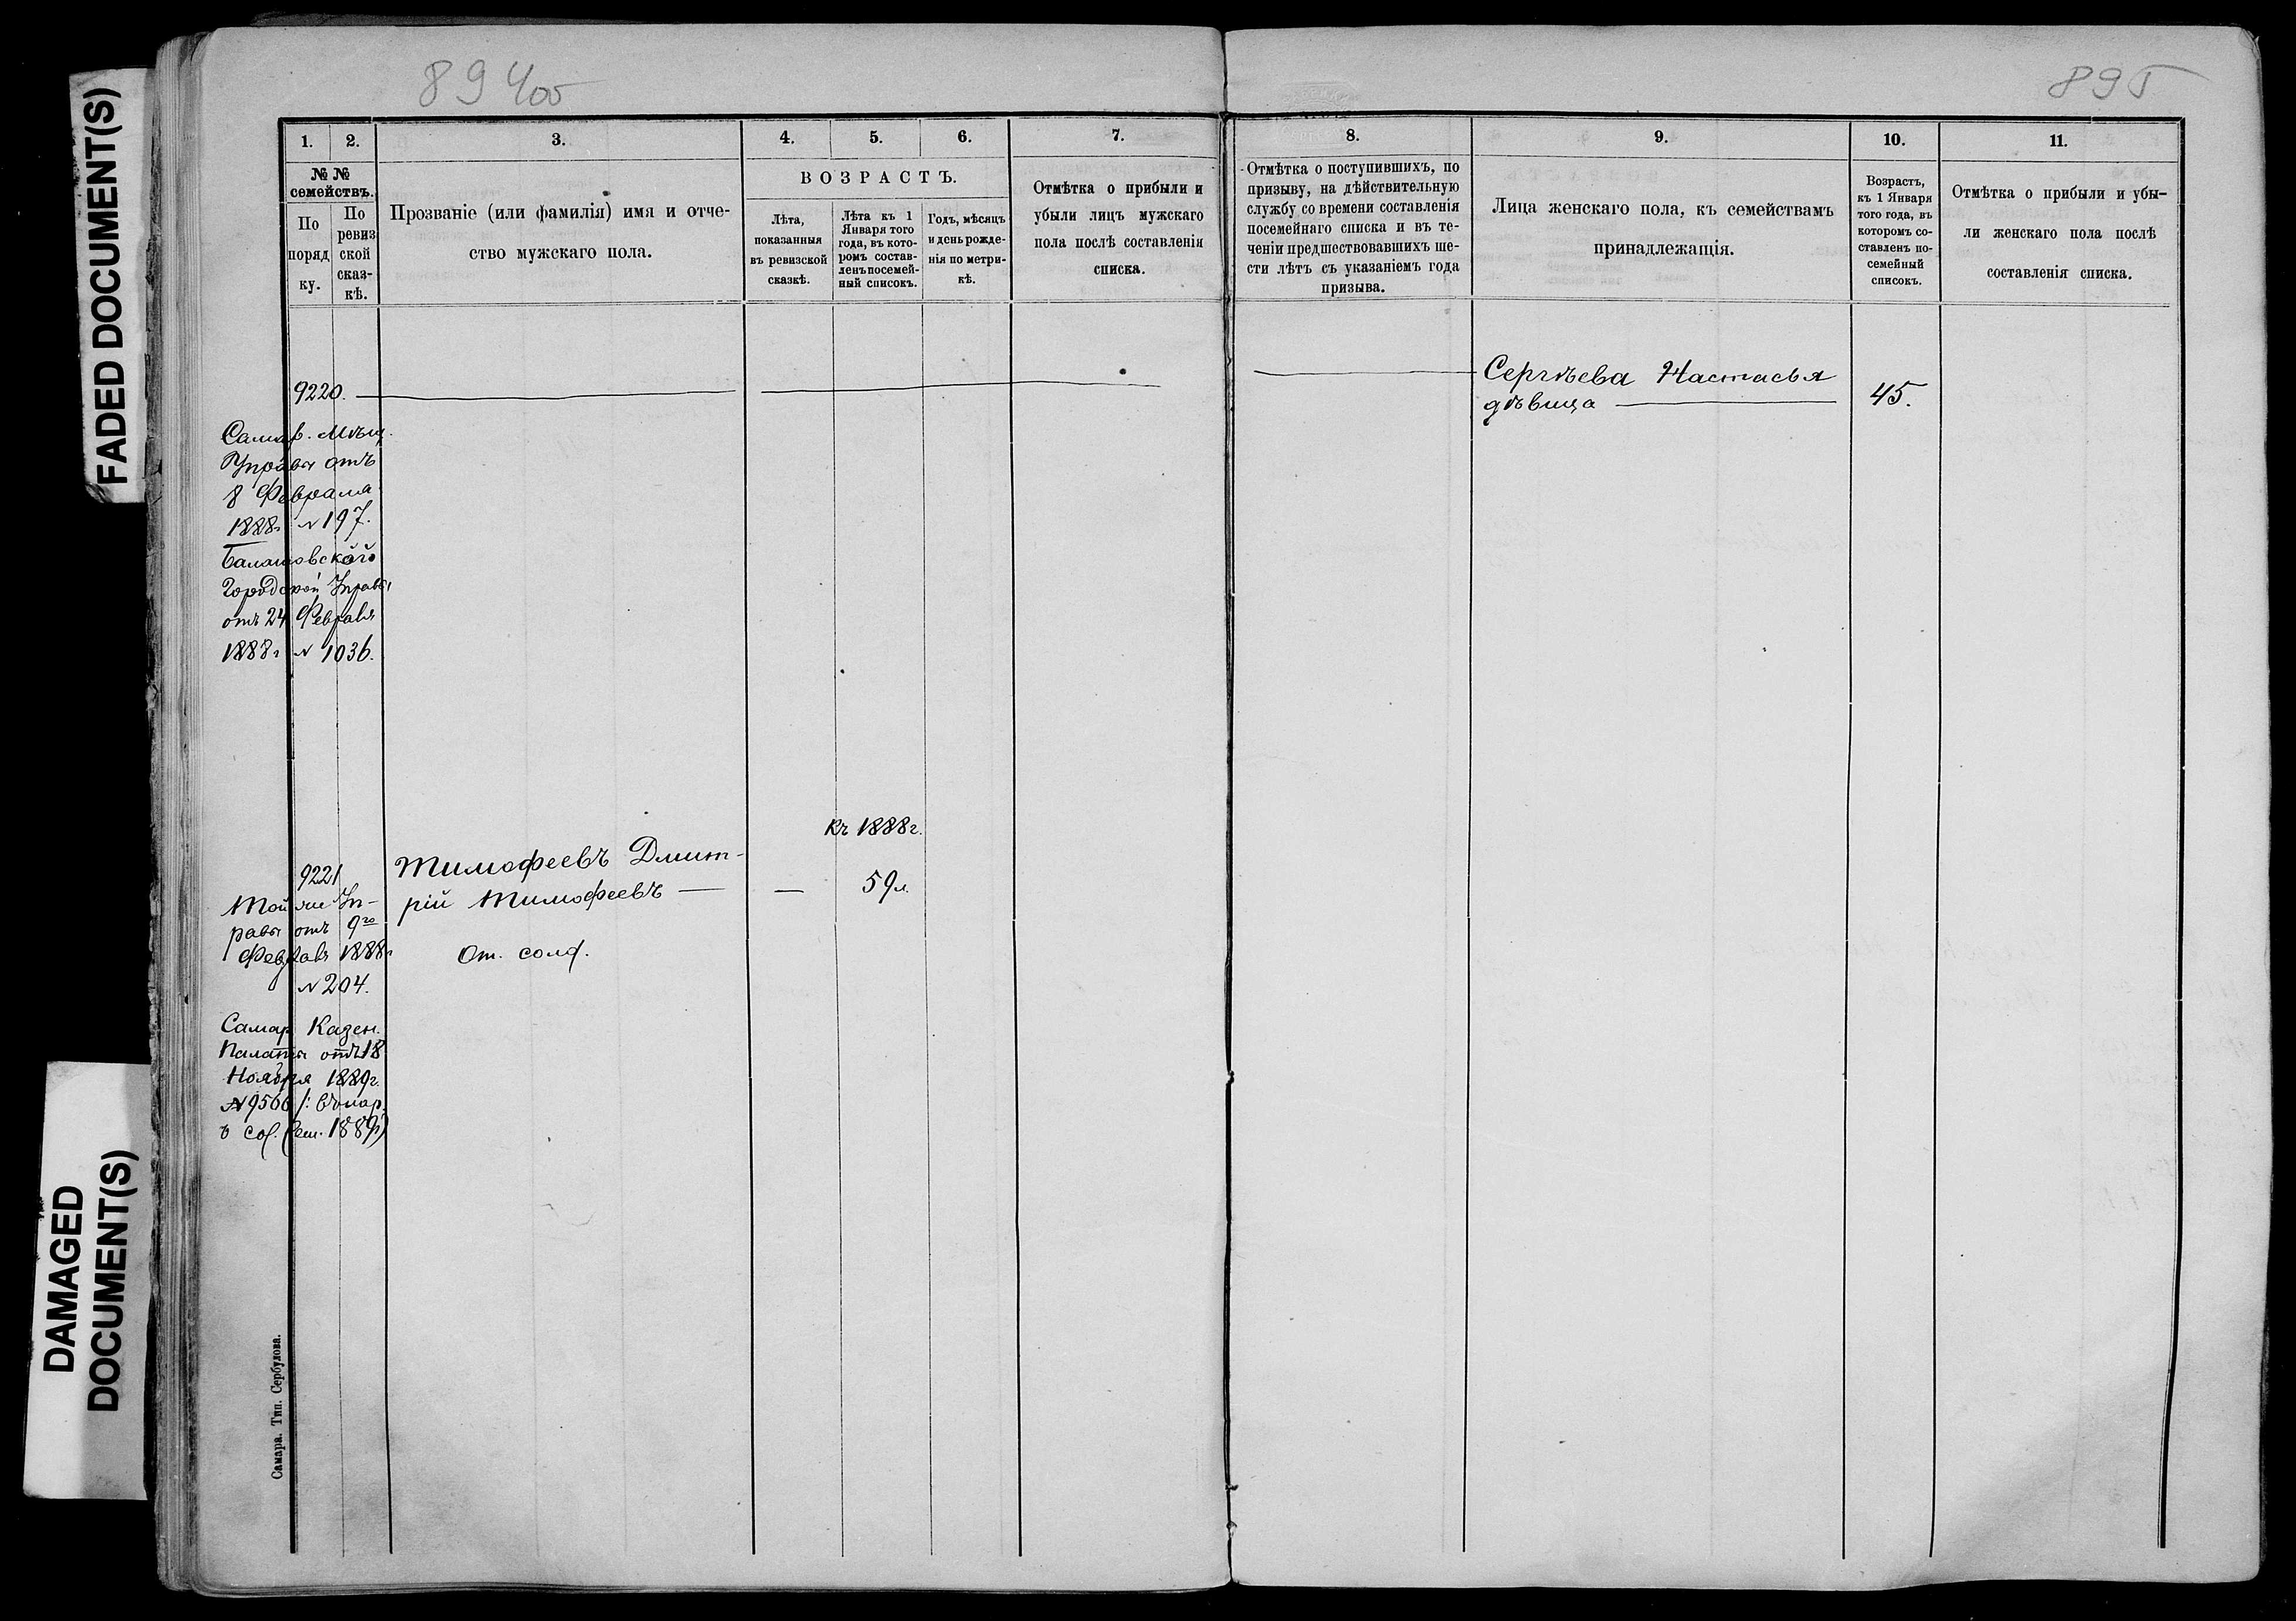 FADED DOCUMENT(S)
DAMAGED
DOCUMENT(S)
894 об
895
1. 2. 3. 4. 5. 6. 7.
№ №
семействъ.
По
поряд
ку.
По
ревиз
ской
сказ-
кѣ.
Прозваніе (или фамилія) имя и отче-
ство мужскаго пола.
ВОЗРАСТЪ.
Лѣта,
показанныя
въ ревизской
сказкѣ.
Лѣта къ 1
Января того
года, въ кото-
ромъ состав-
ленъ посемей-
ный списокъ.
Годъ, мѣсяцъ
и день рожде-
нія по метри-
кѣ.
Отмѣтка о прибыли и
убыли лицъ мужскаго
пола послѣ составленія
списка.
8. 9. 10. 11.
Отмѣтка о поступившихъ, по
призыву, на дѣйствительную
службу со времени составленія
посемейнаго списка и въ те-
ченіи предшествовавшихъ ше-
сти лѣтъ съ указаніемъ года
призыва.
Лица женскаго пола, къ семействамъ
принадлежащія.
Возрастъ,
къ 1 Января
того года, въ
которомъ со-
ставленъ по-
семейный
списокъ.
Отмѣтка о прибыли и убы-
ли женскаго пола послѣ
составленія списка.
9220.
Сергѣева Настасья
дѣвица
45.
Самар. Мѣщ.
Управы отъ
8 Февраля
1888г. № 197.
Балашовской
Городской Управы
отъ 24 Февраля
1888г № 1036.
Къ 1888г.
9221
Тимофеевъ Дмит-
рій Тимофеевъ — — 59л.
От. солд.
Той же Уп-
равы отъ 9го
Февраля 1888г
№ 204.
Самар Казен.
Палаты отъ 18
Ноября 1889г.
№ 9566
Самара. Тип. Сербулова.